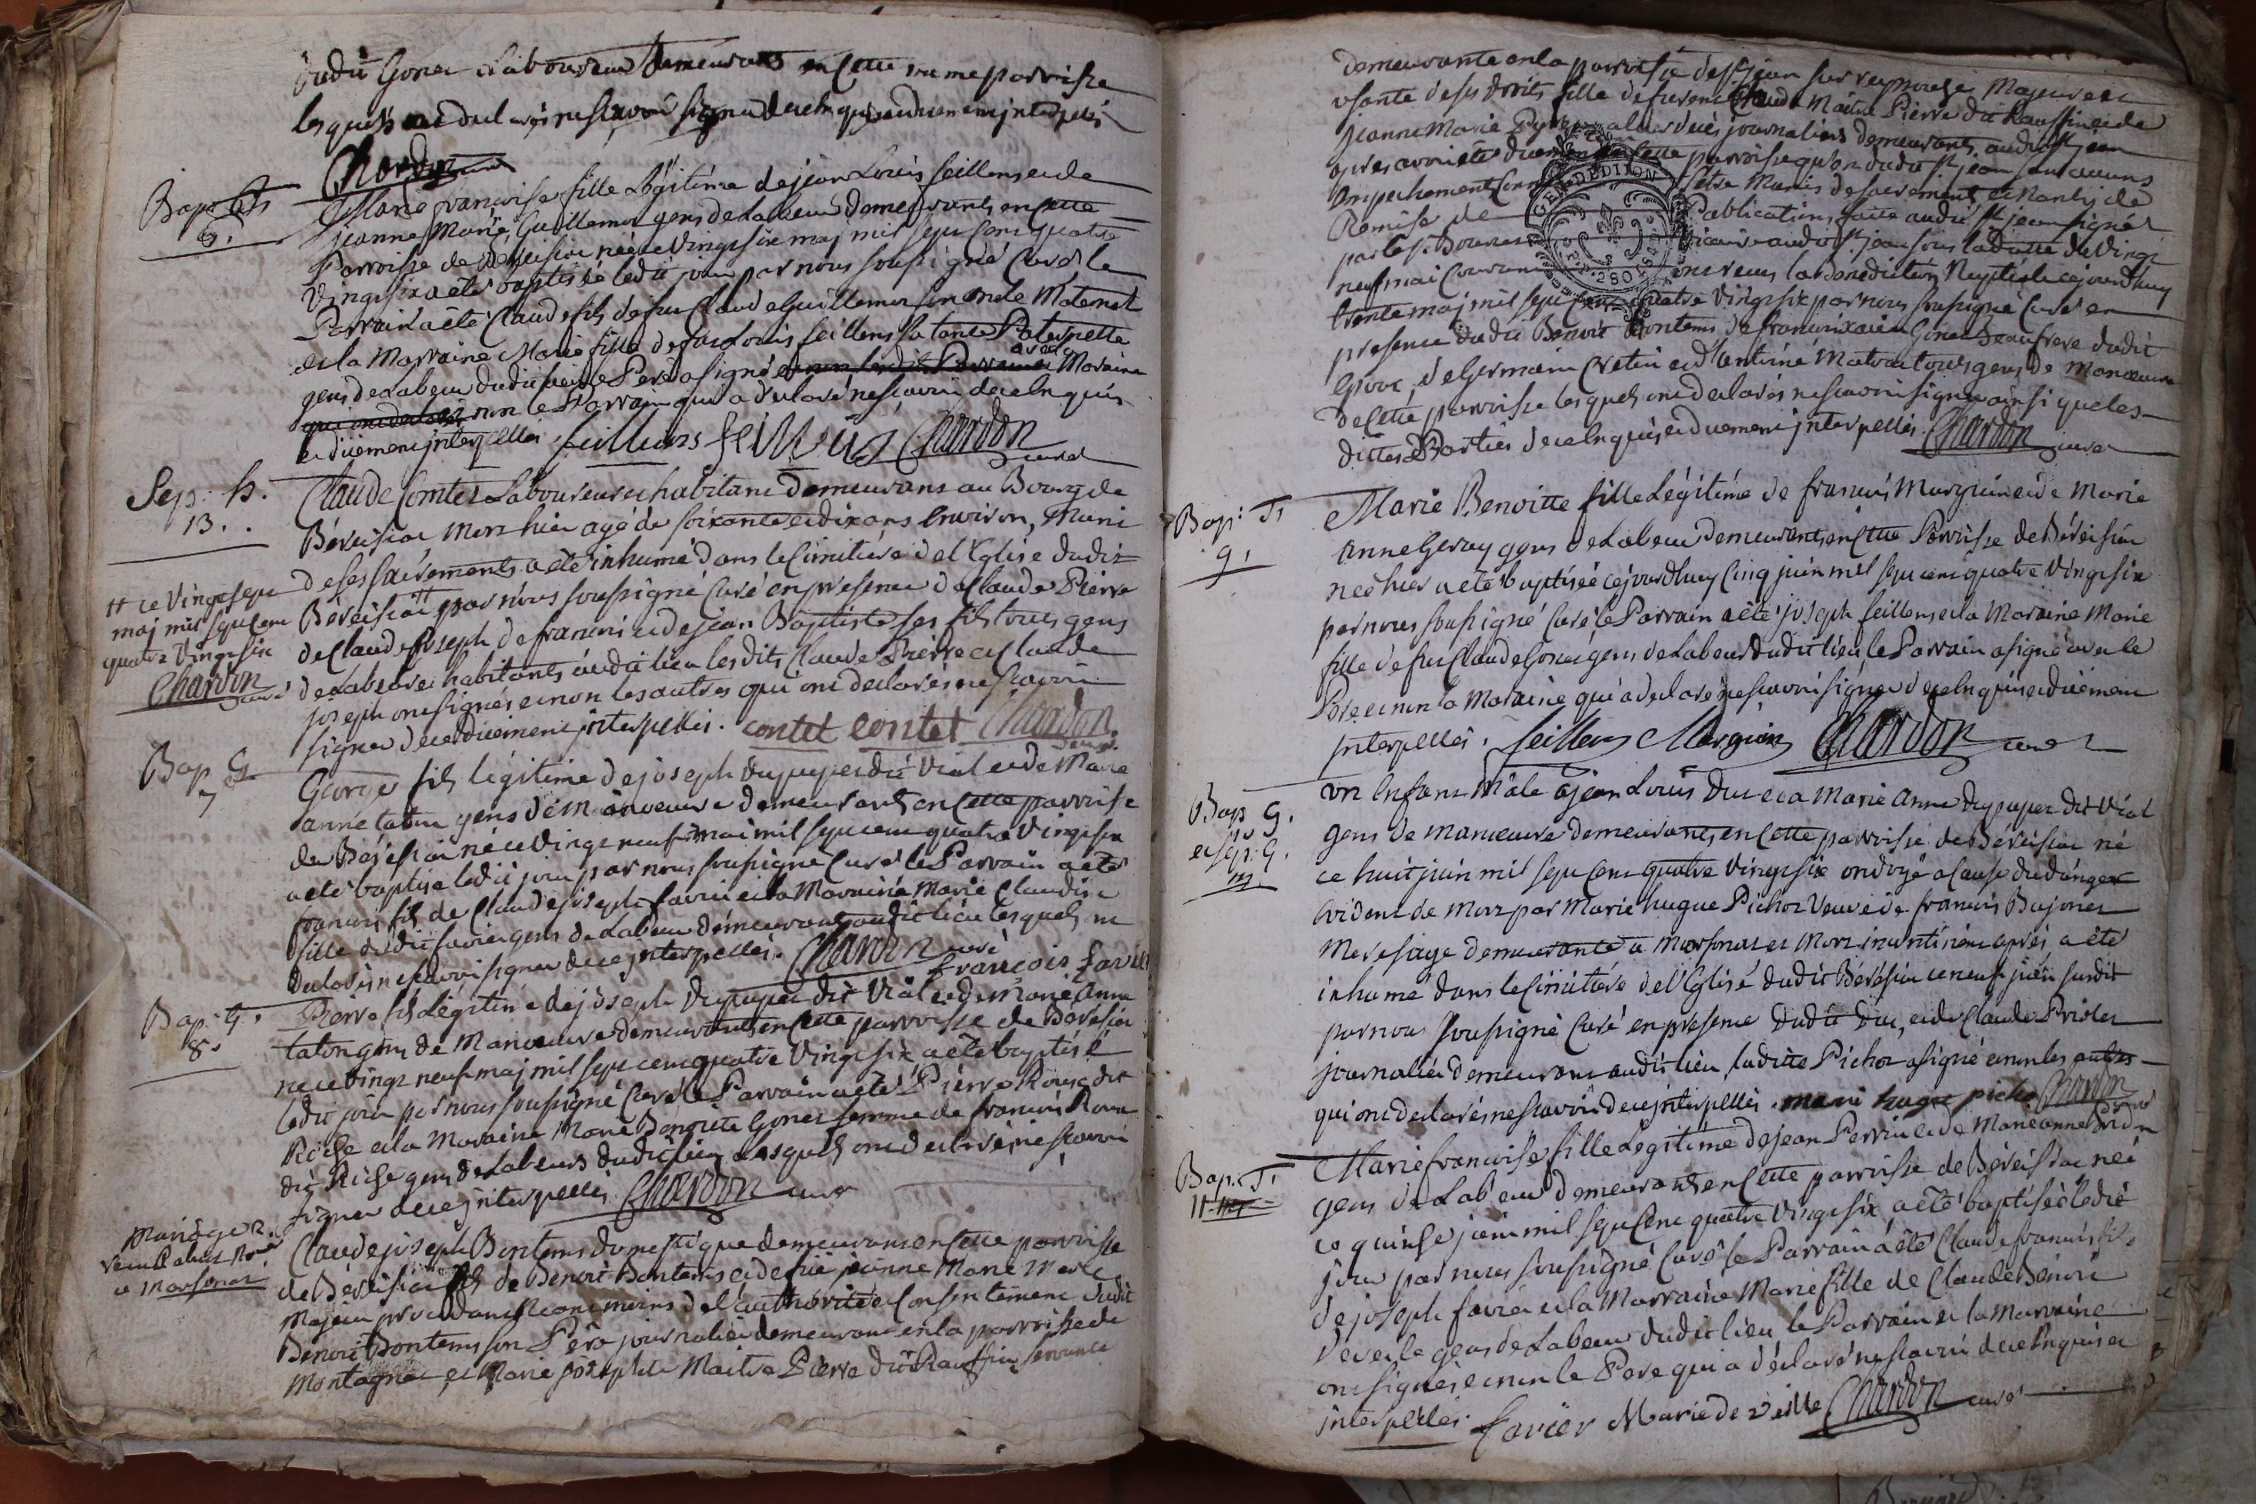 dudit Gonet Laboureur demeurants en cette même parroisse
lesquels ont declarés ne sçavoir signer de ce enquis et duement interpellés
Chardon curé
Bap: f.
6.
Marie françoise fille Légitime de jean Louis feillens et de
jeanne Marie Guillemot gens de Labeur demeurants en cette
Parroisse de Béreisiat née ce vingt six maj mil sept cent quatre
vingt six a été baptisée ledit jour par nous soussigné Curé le
Parrain a été Claude fils de feu Claude Guillemot son oncle Maternel
et la Marraine Marie fille de feu Louis feillens sa tante Paternelle
gens de Labeur dudit lieu le Pere a signé avec la Maraine
non le Parrain qui a declaré ne sçavoir de ce enquis
et duement interpellés. feillens feillens Chardon curé
Sep: h.
13.
Claude Contet Laboureur et habitant demeurans au Bourg de
Béreisiat Mort hier agé de soixante et dix ans environ, Muni
de ses sacrements a été inhumé dans le Cimitière de l'Eglise dudit
Béreisiat par nous soussigné Curé en presence de Claude Pierre
de Claude Joseph de francois et de jean Baptiste ses fils tous gens
de Labeur et habitants audit lieu lesdits Claude Pierre et Claude
joseph ont signés et non les autres qui ont declarés ne sçavoir
signer de ce duement interpellés. contet contet Chardon curé
ce vingt sept
maj mil sept cent
quatre vingt six
Chardon curé
Bap G
7
George fils légitime de joseph Dupuper dit Vial et de Marie
anne taton gens de manoeuvre demeurants en cette parroisse
de Béresiat né ce vingt neuf mai mil sept cent quatre vingt six
a été baptisé ledit jour par nous soussigné Curé le Parrain a été
francois fils de Claude joseph favier et la Maraine Marie Claudine
fille dudit favier gens de Labeur demeurants audit lieu lesquels ont
declarés ne sçavoir signer de ce interpellés. Chardon curé
francois favie
Bap: G.
8.
Pierre fils Légitime de joseph Dupuper dit Vial et de Marie Anne
taton gens de Manoeuvre demeurants en cette parroisse de Béresiat
né ce vingt neuf maj mil sept cent quatre vingt six a été baptisé
ledit jour par nous soussigné Curé le Parrain a été Pierre Roux dit
Riche et la Maraine Marie Benoite Gonet femme de francois Roux
dit Riche gens de Labeurs dudit lieu lesquels ont declaré ne sçavoir
signer de ce interpellés Chardon curé
Mariage 2.
Claude joseph Bontems domestique demeurans en cette parroisse
de Béréisiat fils de Benoit Bontems et de feüe jeanne Marie Merle
Majeur procedant neanmoins de l'authorité et Consentement dudit
Benoit Bontems son Pere journalier demeurant en la parroisse de
Montagnat et Marie Josephte Maitre Pierre dit Rauffin servante
demeurante en la parroisse de St jean sur reyssouse Majeure et
usante de ses droits fille de furent Claude Maitre Pierre dit Rauffin et de
jeanne Marie journaliers demeurants audit St jean
apres avoir été en cette parroisse qu'en dudit St jean sans aucuns
empechement
Remise de Publication faite audit St jean signé
par le Sr Vicaire audit St jean sous la datte du vingt
neuf mai Courant la Benediction Nuptiale ce jourdhuy
trente maj mil sept cent quatre vingt six par nous soussigné Curé en
presence dudit Benoit Bontems de francois xavier Gonet Beaufrere dudit
Epoux, de Germain Cretin et d'antoine tous gens de manoeuvre
de cette parroisse lesquels ont declarés ne sçavoir signer ainsi que les
dittes Parties de ce enquis et duement interpellés. Chardon curé
Bap: f.
9.
Marie Benoitte fille Légitime de francois Marguin et de Marie
Anne Geray gens de Labeur demeurants en cette Parroisse de Béreisiat
née hier a été baptisée ce jourdhuy Cinq juin mil sept cent quatre vingt six
par nous soussigné Curé le Parrain a été joseph feillens et la Maraine Marie
fille de feu Claude Gonet gens de Labeur dudit lieu, le Parrain a signé avec le
Pere et non la Maraine qui a declaré ne sçavoir signer de ce enquis et duement
interpellés. feillens Marguin Chardon curé
Bap G.
10
et sep: G.
Un Enfant Mâle a jean Louis Duc et a Marie Anne Dupuper dit Vial
gens de manoeuvre demeurants en cette parroisse de Béréisiat né
ce huit juin mil sept cent quatre vingt six ondoyé a Cause du danger
évident de Mort par Marie hugue Pichoz veuve de francois Bujonet
Mere sage demeurante a Marsonas et Mort incontinent après, a été
inhumé dans le Cimitière de l'Eglise dudit Bérésiat ce neuf juin susdit
par nous soussigné Curé en presence dudit Duc, et de Claude Prioles
journalier demeurant audit lieu, laditte Pichoz a signé et non les autres
qui ont declarés ne sçavoir de ce interpellés. marie hugue picho Chardon curé
Bap: f.
11
Marie françoise fille Légitime de jean Perrin et de Marie anne
gens de Labeur demeurants en cette parroisse de Béreisiat née
ce quinze juin mil sept cent quatre vingt six a été baptisée ledit
jour par nous soussigné Curé le Parrain a été Claude francois fils
de joseph favier et la Marraine Marie fille de Claude Benoit
Deveile gens de Labeur dudit lieu le Parrain et la Marraine
ont signés et non le Pere qui a déclaré ne sçavoir de ce enquis et
interpellés. favier Marie de veille Chardon curé